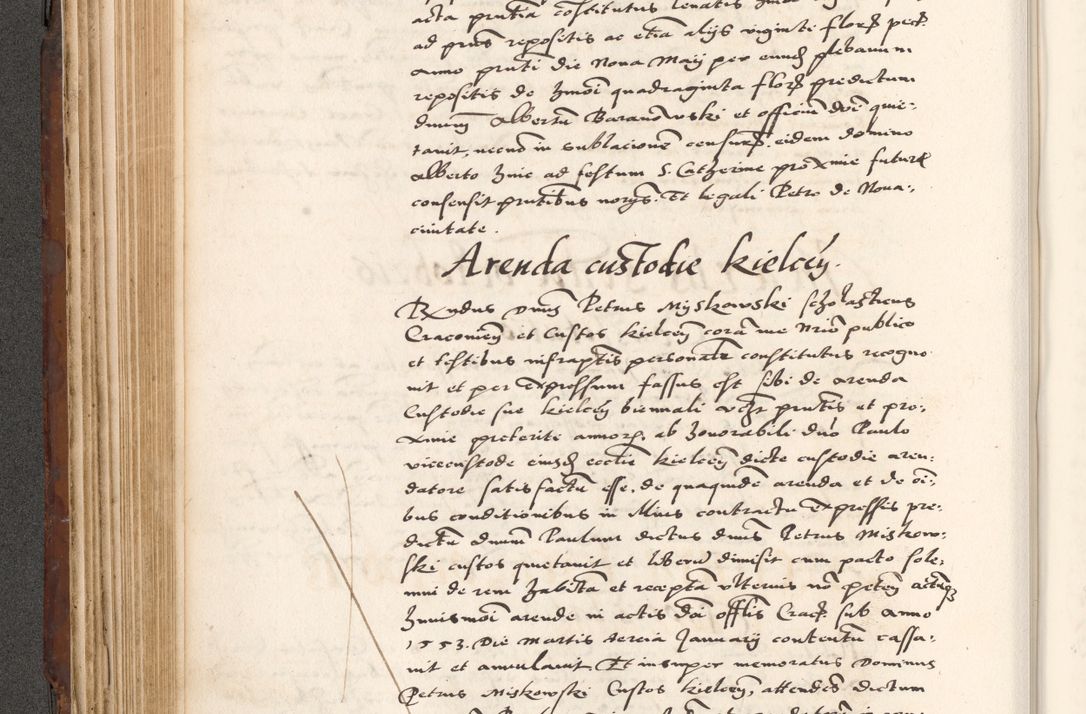 acta prntia constitutus
ad prius repositis ac etia alijs viginti flore pect
anno prnti die Nona Maij per eund plebanum
repositis de hmoi quadraginta flore predictum
dnum Albertu Baranowski et officiu doi quie-
tauit, necno in sublacione censure eidem domino
Alberto huic ad festum S. Catherine proxime future
consensit prntibus norgs. Et legali Petro de Noua-
ciuitate.
Arenda custodie kielcen.
Rxndus Dnus Petrus Myskowski scholasticus
Cracouien et Custos kielcen cora me Nrio publico
et testibus infraptis personale constitutus recogno
uit et per expressum fassus est sibi de arenda
Custodie sue kielcen biennali vczt prntis et pro-
xime preterite annor, ab honorabili dno Paulo
vicecustode eiusd ecclie kielcen dicte custodie aren-
datore satisfactu esse, de quaquide arenda et de oi-
bus conditionibus in illius contractu expressis pre-
dictu dnum Paulum dictus dnus Petrus Miskow-
ski custos quietauit et liberu dimisit cum pacto sole-
nni de rem habita et recepta vlterius no peten actuq
huiusmoi arende in actis doi offlis Crac sub anno
1553. Die Martis tercia Januarij contentu cassa-
uit et annulauit Et insuper memoratus Dominus
Petrus Miskowski Custos kielcen, attendes dictum